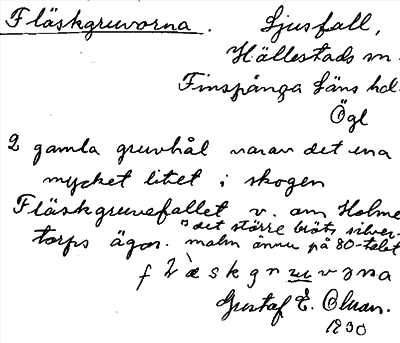 Fläskgruvorna. Ljusfall,
Hällestads sn
Finspånga läns hd.
Ögl
2 gamla gruvhål varav det ena
mycket litet i skogen
Fläskgruvefallet v. om Holme
torps ägor. "I det större bröts silver-
malm ännu på 80-talet
Gustaf E.
1930